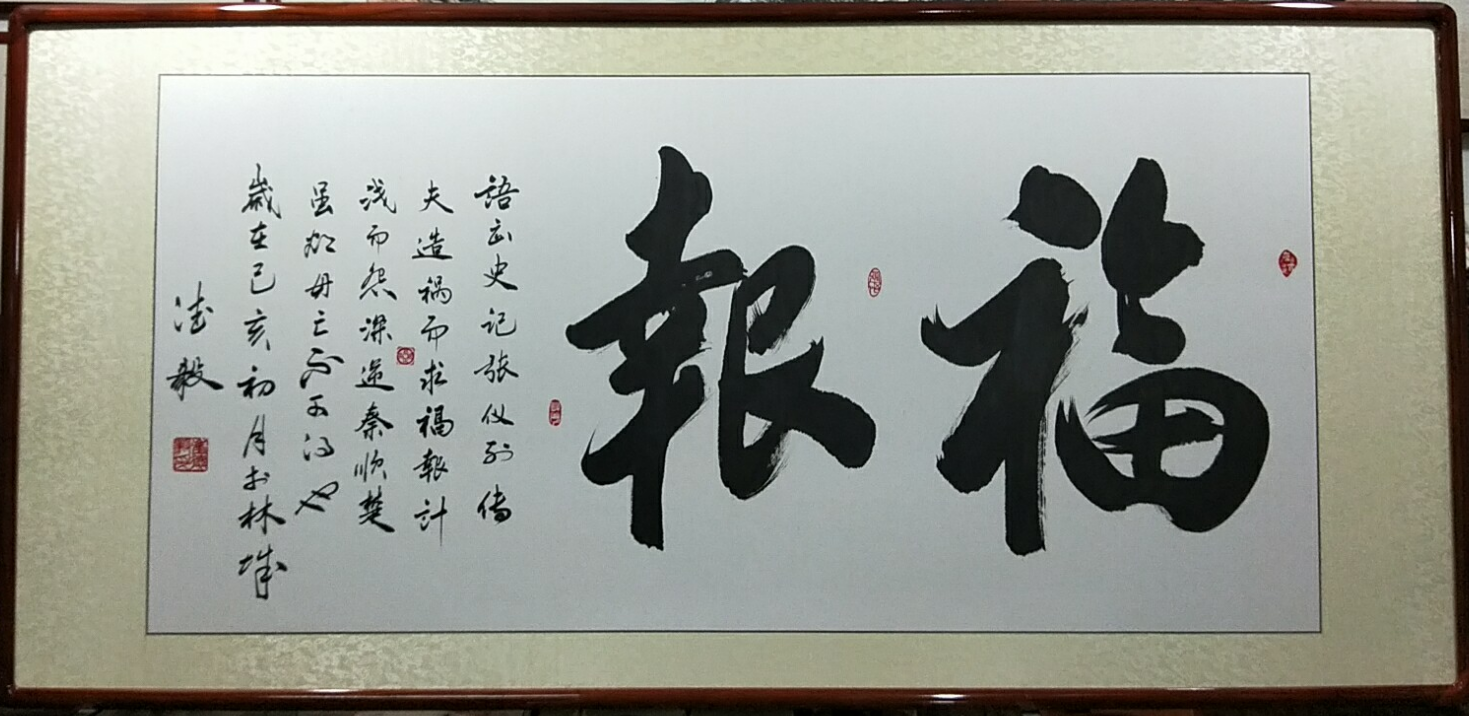 福報
語出史记张仪列传
夫造禍而求福報計
浅而怨深逆秦順楚
虽欲毋亡不可得也
歲在己亥初月於林城
毅